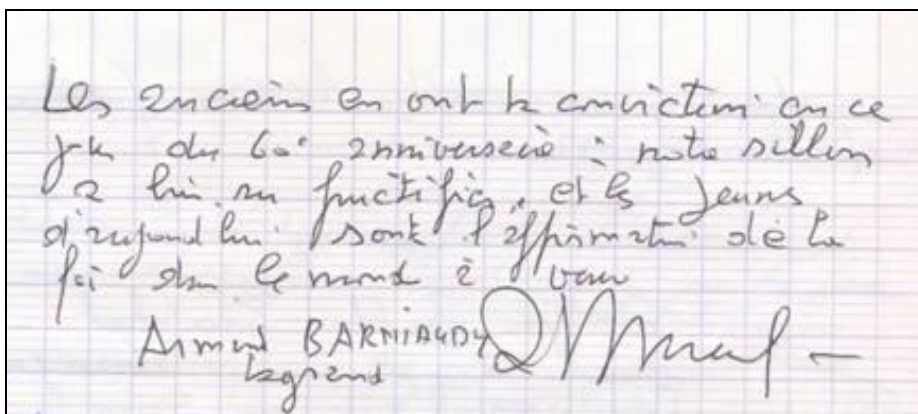 Les anciens en ont la conviction en ce
jour du 60e anniversaire : notre sillon
a bien su fructifier, et les jeunes
d'aujourd'hui sont l'affirmation de la
foi dans le monde à venir
Armand BARNIAUDY
Legrand